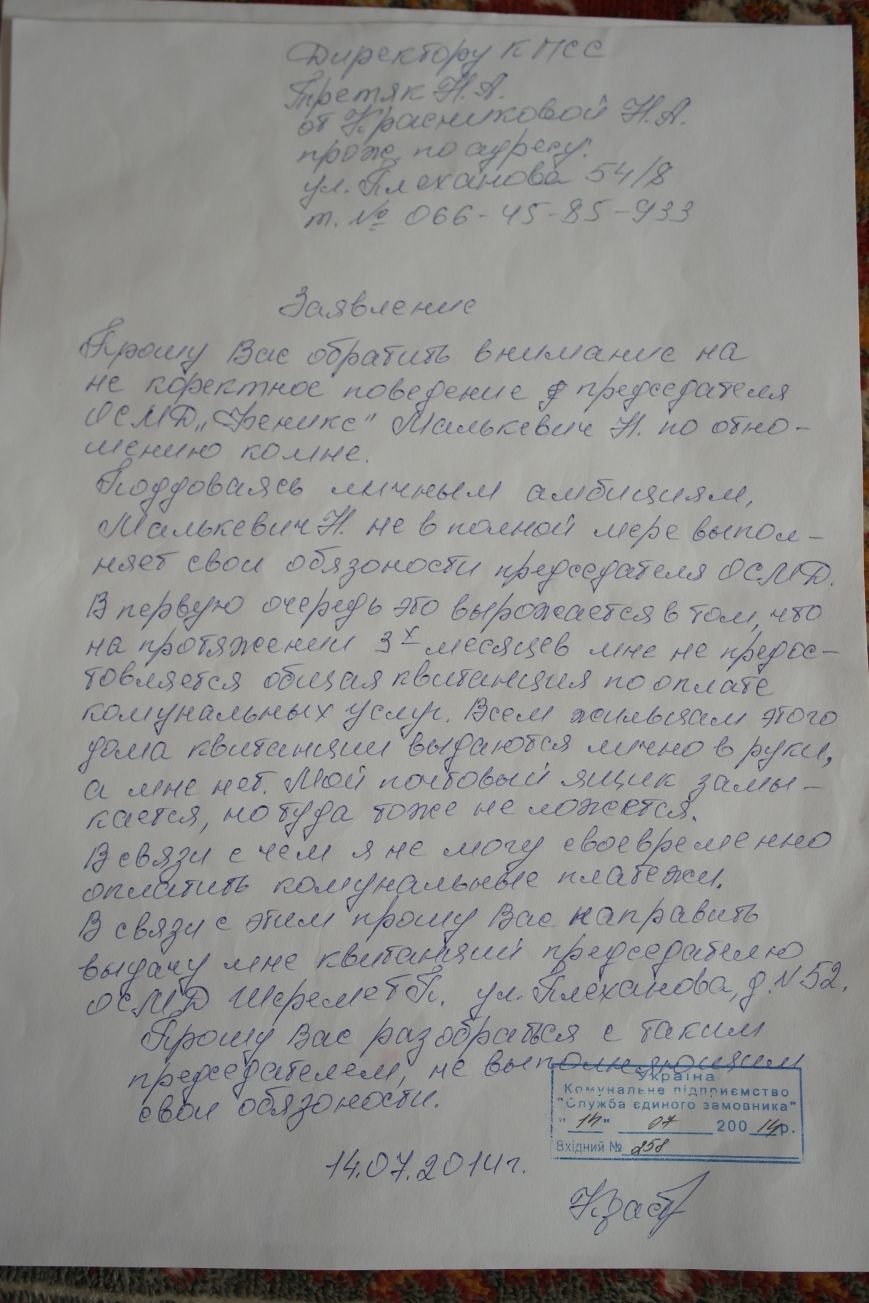 Директору КПСС
Третяк Н.А.
от Красниковой Н.А.
прож. по адресу:
ул. Плеханова 54/8
т. № 066-45-85-933
Заявление
Прошу Вас обратить внимание на
не коректное поведение председателя
ОСМД „Феникс" Малькевич Н. по отно-
шению ко мне.
Поддоваясь личным амбициям,
Малькевич Н. не в полной мере выпол-
няет свои обязоности председателя ОСМД.
В первую очередь это вырожается в том, что
на протяжении 3х месяцев мне не предос-
товляется общая квитанция по оплате
комунальных услуг. Всем жильцам этого
дома квитанции выдаются лично в руки,
а мне нет. Мой почтовый ящик замы-
кается, но туда тоже не ложется.
В связи с чем я не могу своевременно
оплатить комунальные платежи.
В связи с этим прошу Вас направить
выдачу мне квитанций председателю
ОСМД Шеремет П. ул. Плеханова, д. № 52.
Прошу Вас разобраться с таким
председателем, не выполняющим
свои обязоности.
Україна
Комунальне підприємство
"Служба єдиного замовника"
"14" 07 200 14р.
Вхідний № 258
14.07.2014г.